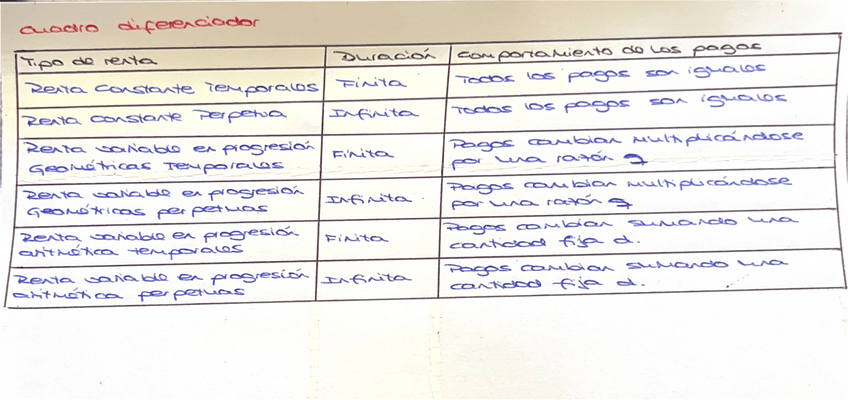 cuadro diferenciador
Tipo de renta Duración comportamiento de los pagos
Renta constante Temporales Finita Todos los pagos son iguales
Renta constante Perpetua Infinita Todos los pagos son iguales
Renta variable en progresión
Geométricas Temporales Finita Pagos cambian multiplicándose
por una razón q
Renta variable en progresión
Geométricas perpetuas Infinita Pagos cambian multiplicándose
por una razón q
Renta variable en progresión
aritmética temporales Finita Pagos cambian sumando una
cantidad fija d.
Renta variable en progresión
aritmética perpetuas Infinita Pagos cambian sumando una
cantidad fija d.